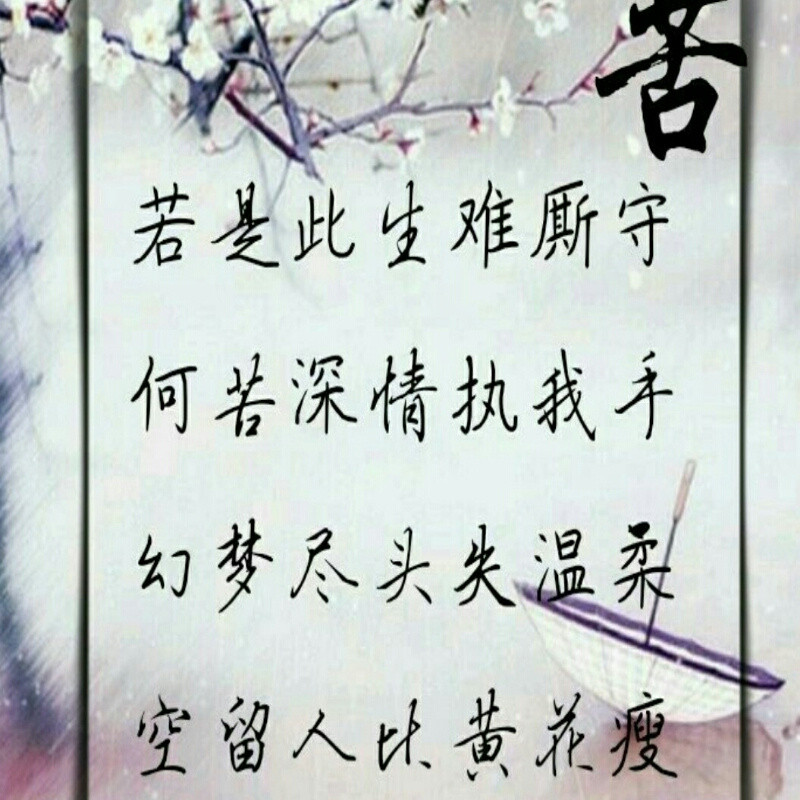 苦
若是此生难厮守
何苦深情执我手
幻梦尽头失温柔
空留人比黄花瘦